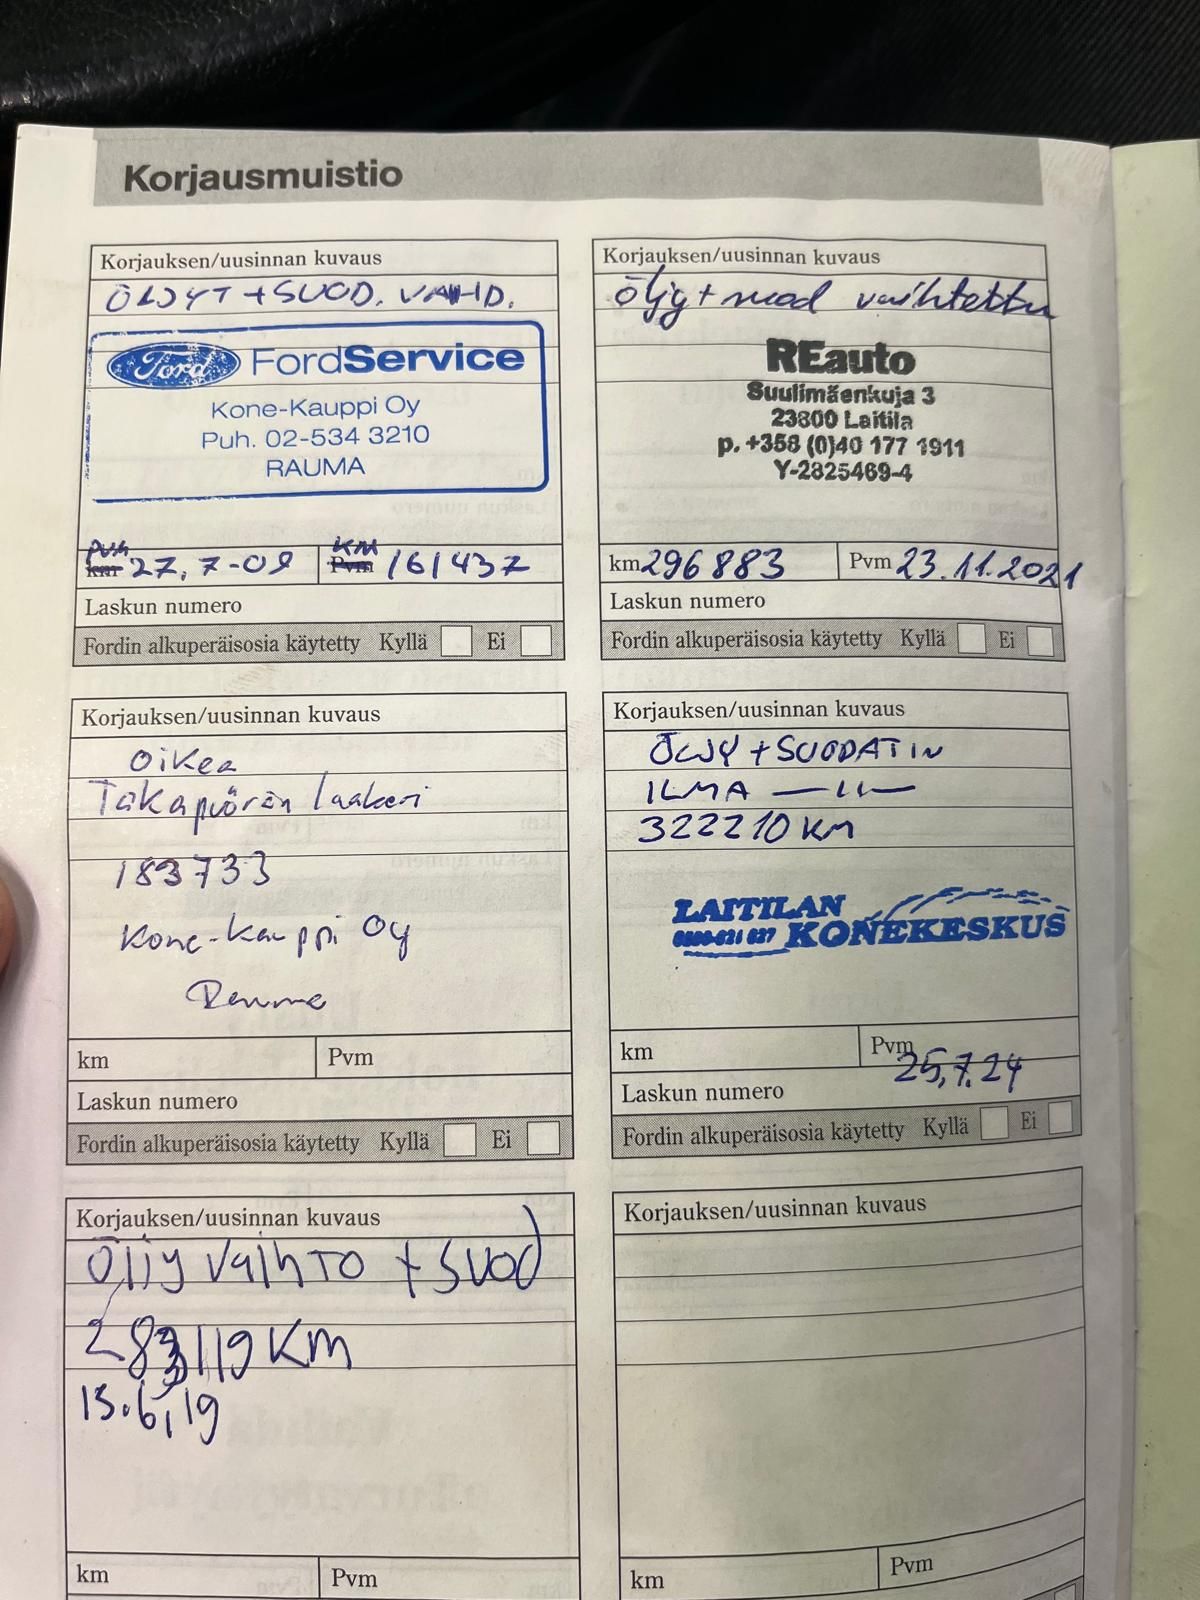 Korjausmuistio
Korjauksen/uusinnan kuvaus
ÖLJYT + SUOD. VAIHD.
Ford FordService
Kone-Kauppi Oy
Puh. 02-534 3210
RAUMA
PVM km 27.7-09 KM Pvm 161437
Laskun numero
Fordin alkuperäisosia käytetty Kyllä Ei
Korjauksen/uusinnan kuvaus
Oikea
Takapyörän laakeri
183733
Kone-Kauppi Oy
Rauma
km Pvm
Laskun numero
Fordin alkuperäisosia käytetty Kyllä Ei
Korjauksen/uusinnan kuvaus
Öljy vaihto + suod
283119 KM
15.6.19
km Pvm
Korjauksen/uusinnan kuvaus
öljy + suod vaihtettu
REauto
Suulimäenkuja 3
23800 Laitila
p. +358 (0)40 177 1911
Y-2825469-4
km 296883 Pvm 23.11.2021
Laskun numero
Fordin alkuperäisosia käytetty Kyllä Ei
Korjauksen/uusinnan kuvaus
ÖLJY + SUODATIN
ILMA —11—
322210 KM
LAITILAN
KONEKESKUS
km Pvm
25.7.24
Laskun numero
Fordin alkuperäisosia käytetty Kyllä Ei
Korjauksen/uusinnan kuvaus
km Pvm